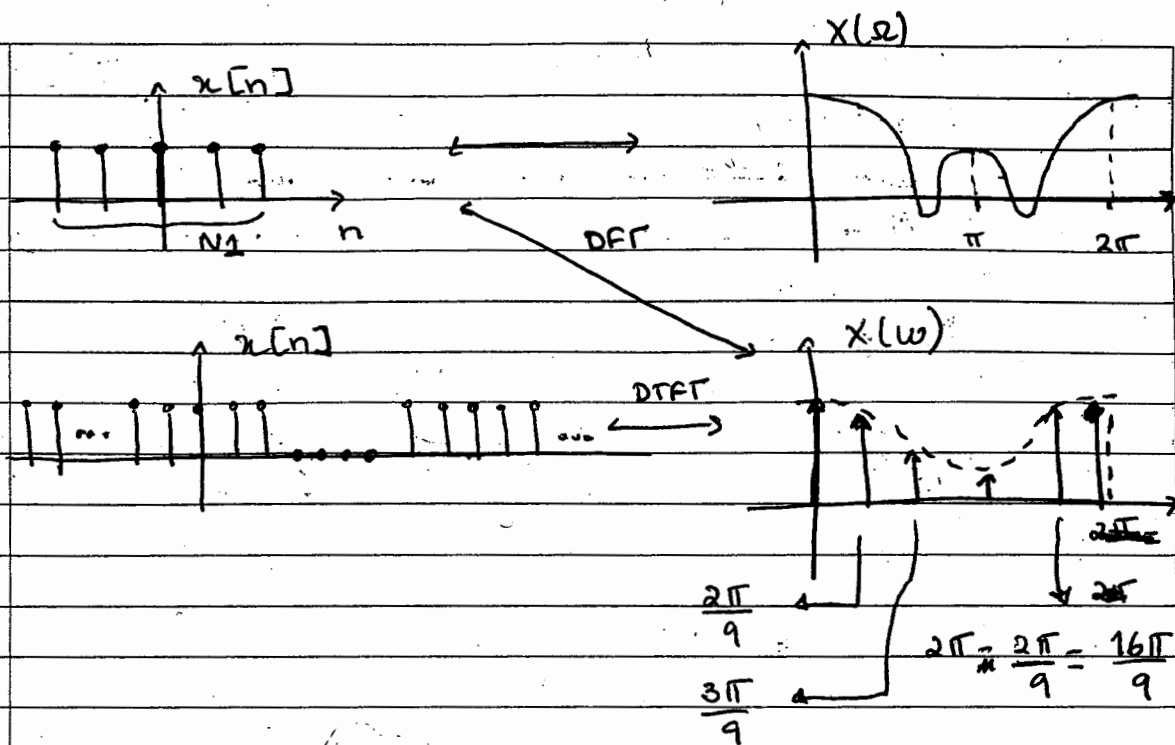 X(Ω)
x[n]
N1
n
DFT
π
2π
x[n]
...
...
DTFT
X(ω)
2π/9
3π/9
2π - 2π/9 = 16π/9